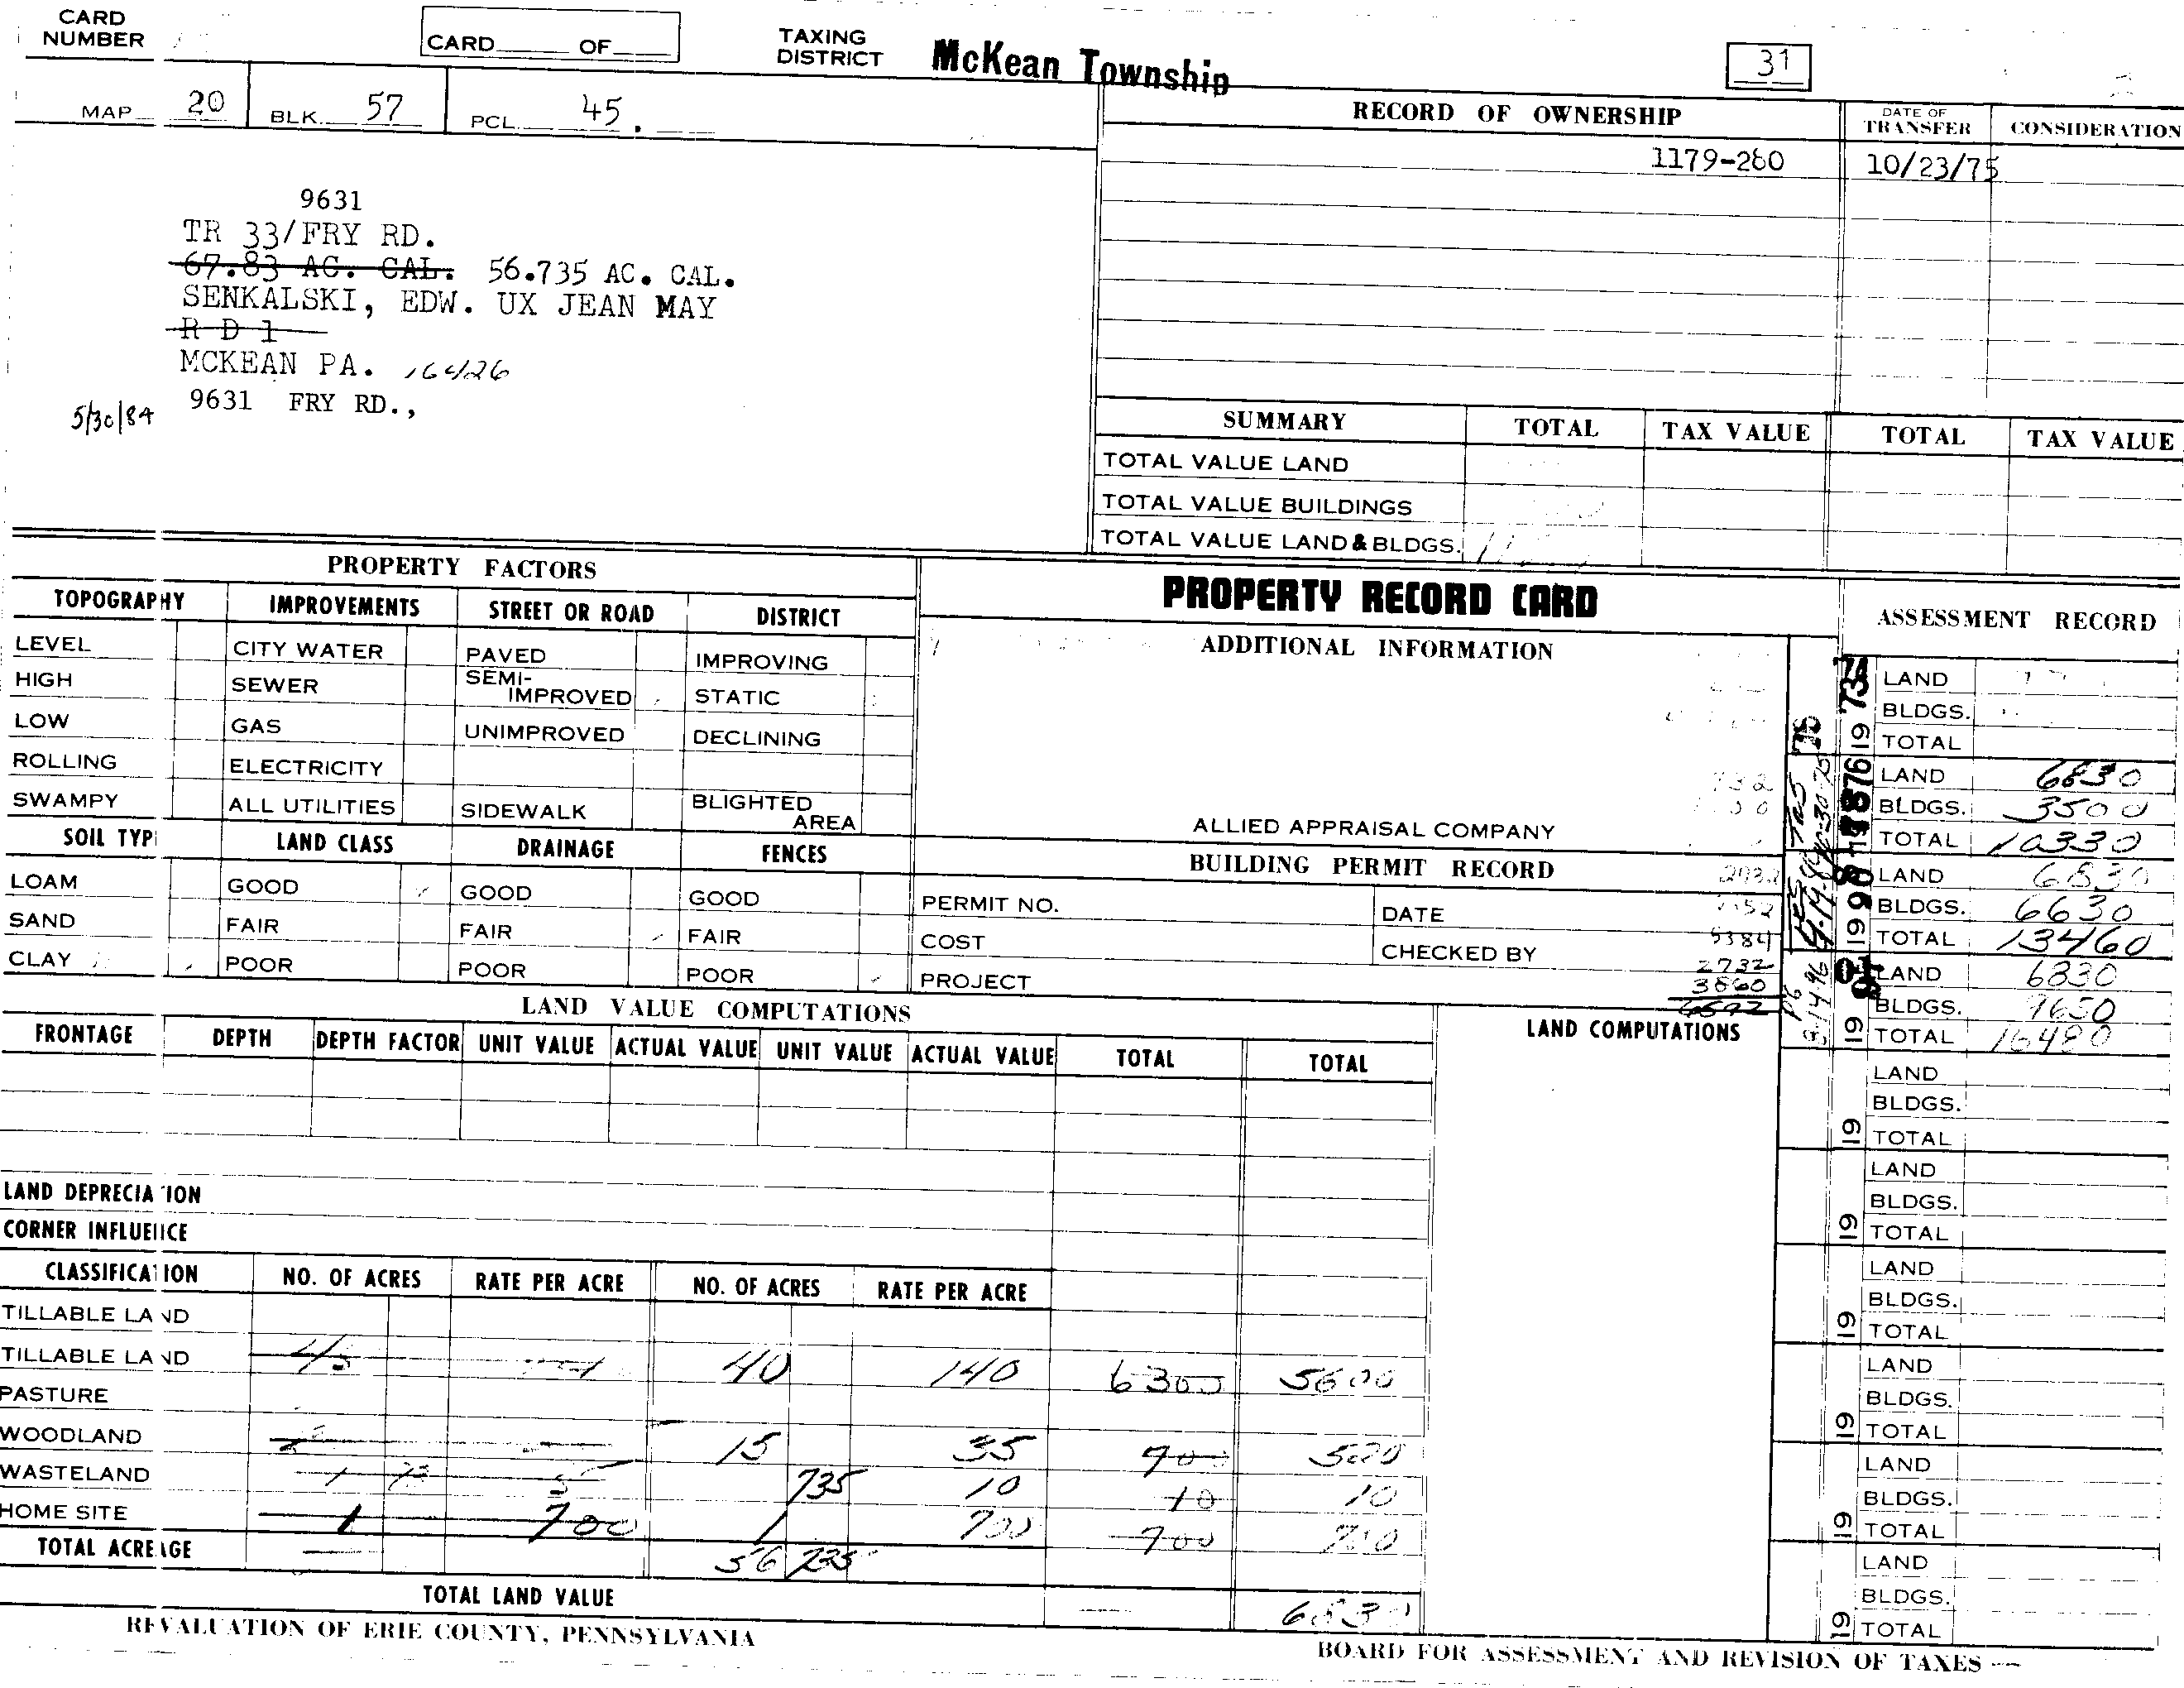 CARD NUMBER
CARD OF
TAXING DISTRICT McKean Township
31
MAP 20 BLK. 57 PCL. 45.
RECORD OF OWNERSHIP DATE OF TRANSFER CONSIDERATION
1179-280 10/23/75
9631
TR 33/FRY RD.
67.83 AC. CAL. 56.735 AC. CAL.
SENKALSKI, EDW. UX JEAN MAY
R D 1
MCKEAN PA. 16426
5/30/84 9631 FRY RD.,
SUMMARY TOTAL TAX VALUE TOTAL TAX VALUE
TOTAL VALUE LAND
TOTAL VALUE BUILDINGS
TOTAL VALUE LAND & BLDGS.
PROPERTY FACTORS
TOPOGRAPHY IMPROVEMENTS STREET OR ROAD DISTRICT
LEVEL CITY WATER PAVED IMPROVING
HIGH SEWER SEMI-IMPROVED STATIC
LOW GAS UNIMPROVED DECLINING
ROLLING ELECTRICITY
SWAMPY ALL UTILITIES SIDEWALK BLIGHTED AREA
SOIL TYP LAND CLASS DRAINAGE FENCES
LOAM GOOD GOOD GOOD
SAND FAIR FAIR FAIR
CLAY POOR POOR POOR
PROPERTY RECORD CARD
ADDITIONAL INFORMATION
ALLIED APPRAISAL COMPANY
BUILDING PERMIT RECORD
PERMIT NO. DATE
COST CHECKED BY
PROJECT
5384
2732
3860
6592
ASSESSMENT RECORD
LAND
BLDGS.
19 TOTAL
LAND 6830
BLDGS. 3500
TOTAL 10330
LAND 6830
BLDGS. 6630
19 TOTAL 13460
LAND 6830
BLDGS. 9650
19 TOTAL 16480
LAND
BLDGS.
19 TOTAL
LAND
BLDGS.
19 TOTAL
LAND
BLDGS.
19 TOTAL
LAND
BLDGS.
19 TOTAL
LAND
BLDGS.
19 TOTAL
LAND
BLDGS.
19 TOTAL
LAND VALUE COMPUTATIONS
LAND COMPUTATIONS
FRONTAGE DEPTH DEPTH FACTOR UNIT VALUE ACTUAL VALUE UNIT VALUE ACTUAL VALUE TOTAL TOTAL
LAND DEPRECIATION
CORNER INFLUENCE
CLASSIFICATION NO. OF ACRES RATE PER ACRE NO. OF ACRES RATE PER ACRE
TILLABLE LAND
TILLABLE LAND 45 40 140 6300 5600
PASTURE
WOODLAND 15 35 700 520
WASTELAND 1 735 10 10 10
HOME SITE 1 700 1 700 700 700
TOTAL ACREAGE 56 735
TOTAL LAND VALUE 6830
REVALUATION OF ERIE COUNTY, PENNSYLVANIA
BOARD FOR ASSESSMENT AND REVISION OF TAXES